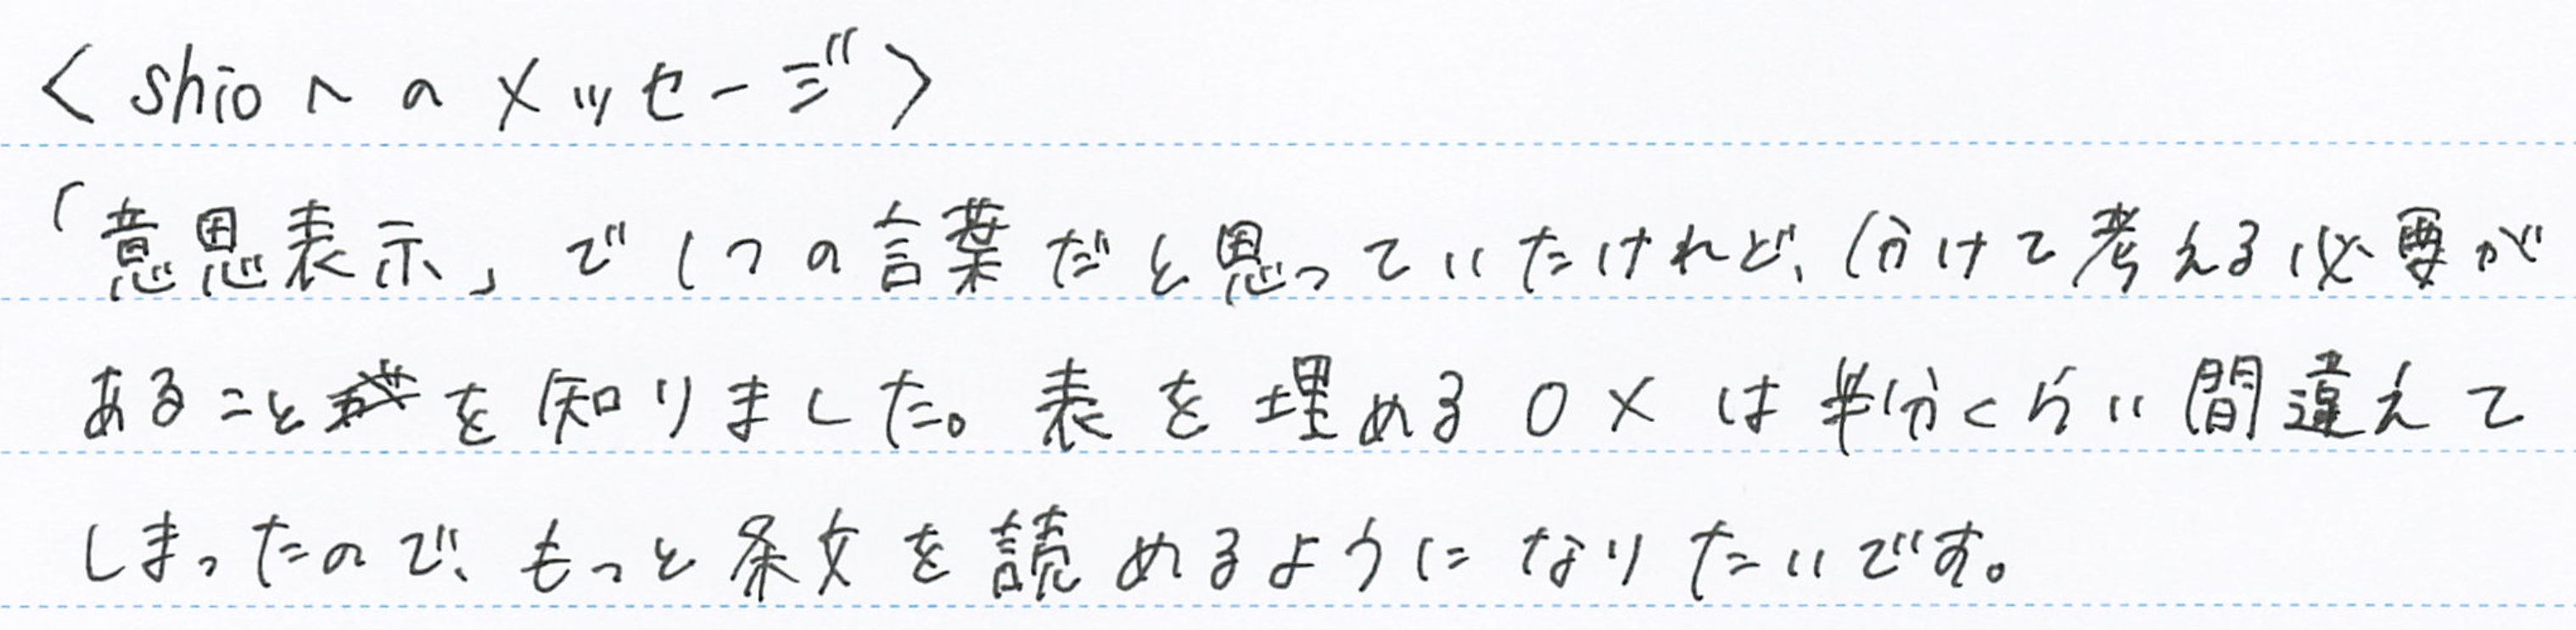 <shioへのメッセージ>
「意思表示」で1つの言葉だと思っていたけれど、分けて考える必要が
あることを知りました。表を埋める○×は半分くらい間違えて
しまったので、もっと条文を読めるようになりたいです。